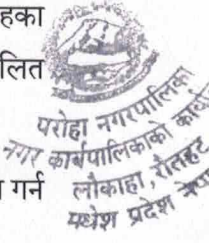 हका
लित
परोहा नगरपालिका
नगर कार्यपालिकाको कार्या
र्न गर्न
लौकाहा, रौतहट
मधेश प्रदेश नेपा